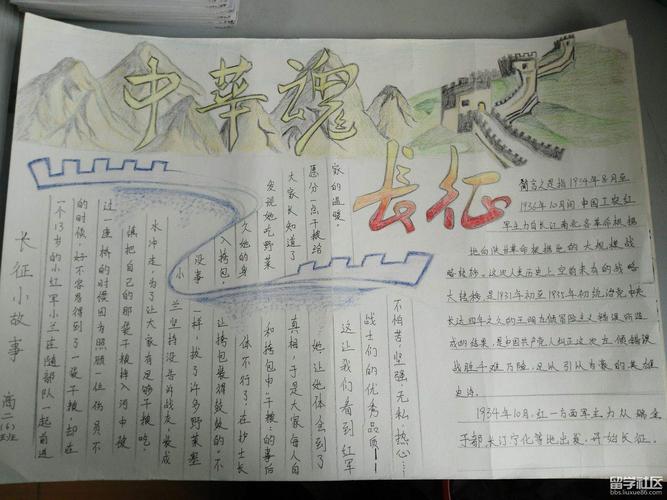 中华魂
长征
长征小故事
高二(6)班
一个13岁的小红军小兰在随部队一起前进
的时候，好不容易得到了一袋干粮，却在
过一座桥的时候因为照顾一位伤员不
慎把自己的那袋干粮掉入河中被
水冲走，为了让大家有足够干粮吃，
小兰坚持没告诉战友，装成
没事一样，拔了许多野菜塞
入挎包，让挎包装得鼓鼓的。不
久她的身体不行了，在护士长
发现她吃野菜和挎包中"干粮"的事后
大家长知道了真相，于是大家每人自
愿分一点干粮给她，让她体会到了
家的温暖。这让我们看到红军
战士们的优秀品质——
不怕苦，坚强，无私，热心…
简言之是指1934年8月至
1936年10月间中国工农红
军主力自长江南北各革命根据
地向陕甘革命根据地的大规模战
略转移。这次人类历史上空前未有的战略
大转移，是1931年初至1935年初统治党中央
长达四年之久的王明左倾冒险主义错误所造
成的结果，是中国共产党人纠正这次左倾错误
战胜千难万险，足以引以为豪的英雄
史诗。
1934年10月，红一方面军主力从瑞金
于都，长汀宁化等地出发，开始长征。
留学社区
bbs.liuxue86.com